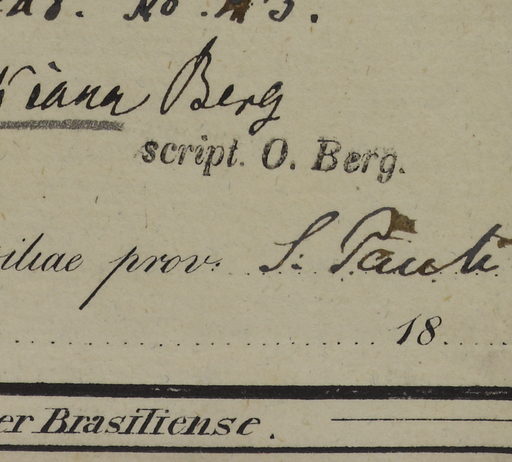 No.
iana Berg
script. O. Berg.
iliae prov. S. Pauli
18
er Brasiliense.